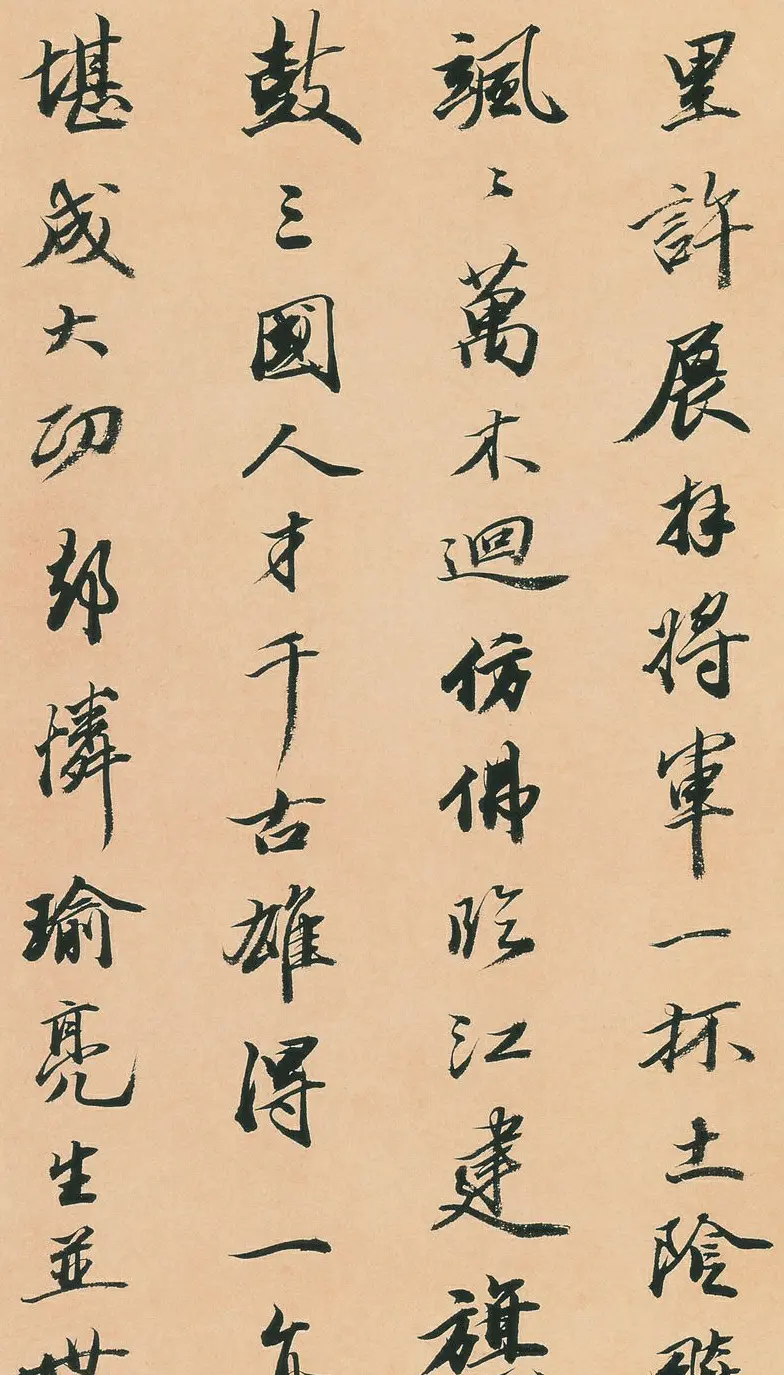 里許展拜將軍一抔土陰
颯〻萬木迴仿佛臨江建旗
鼓三國人才千古雄得一
堪成大功却憐瑜亮生並世